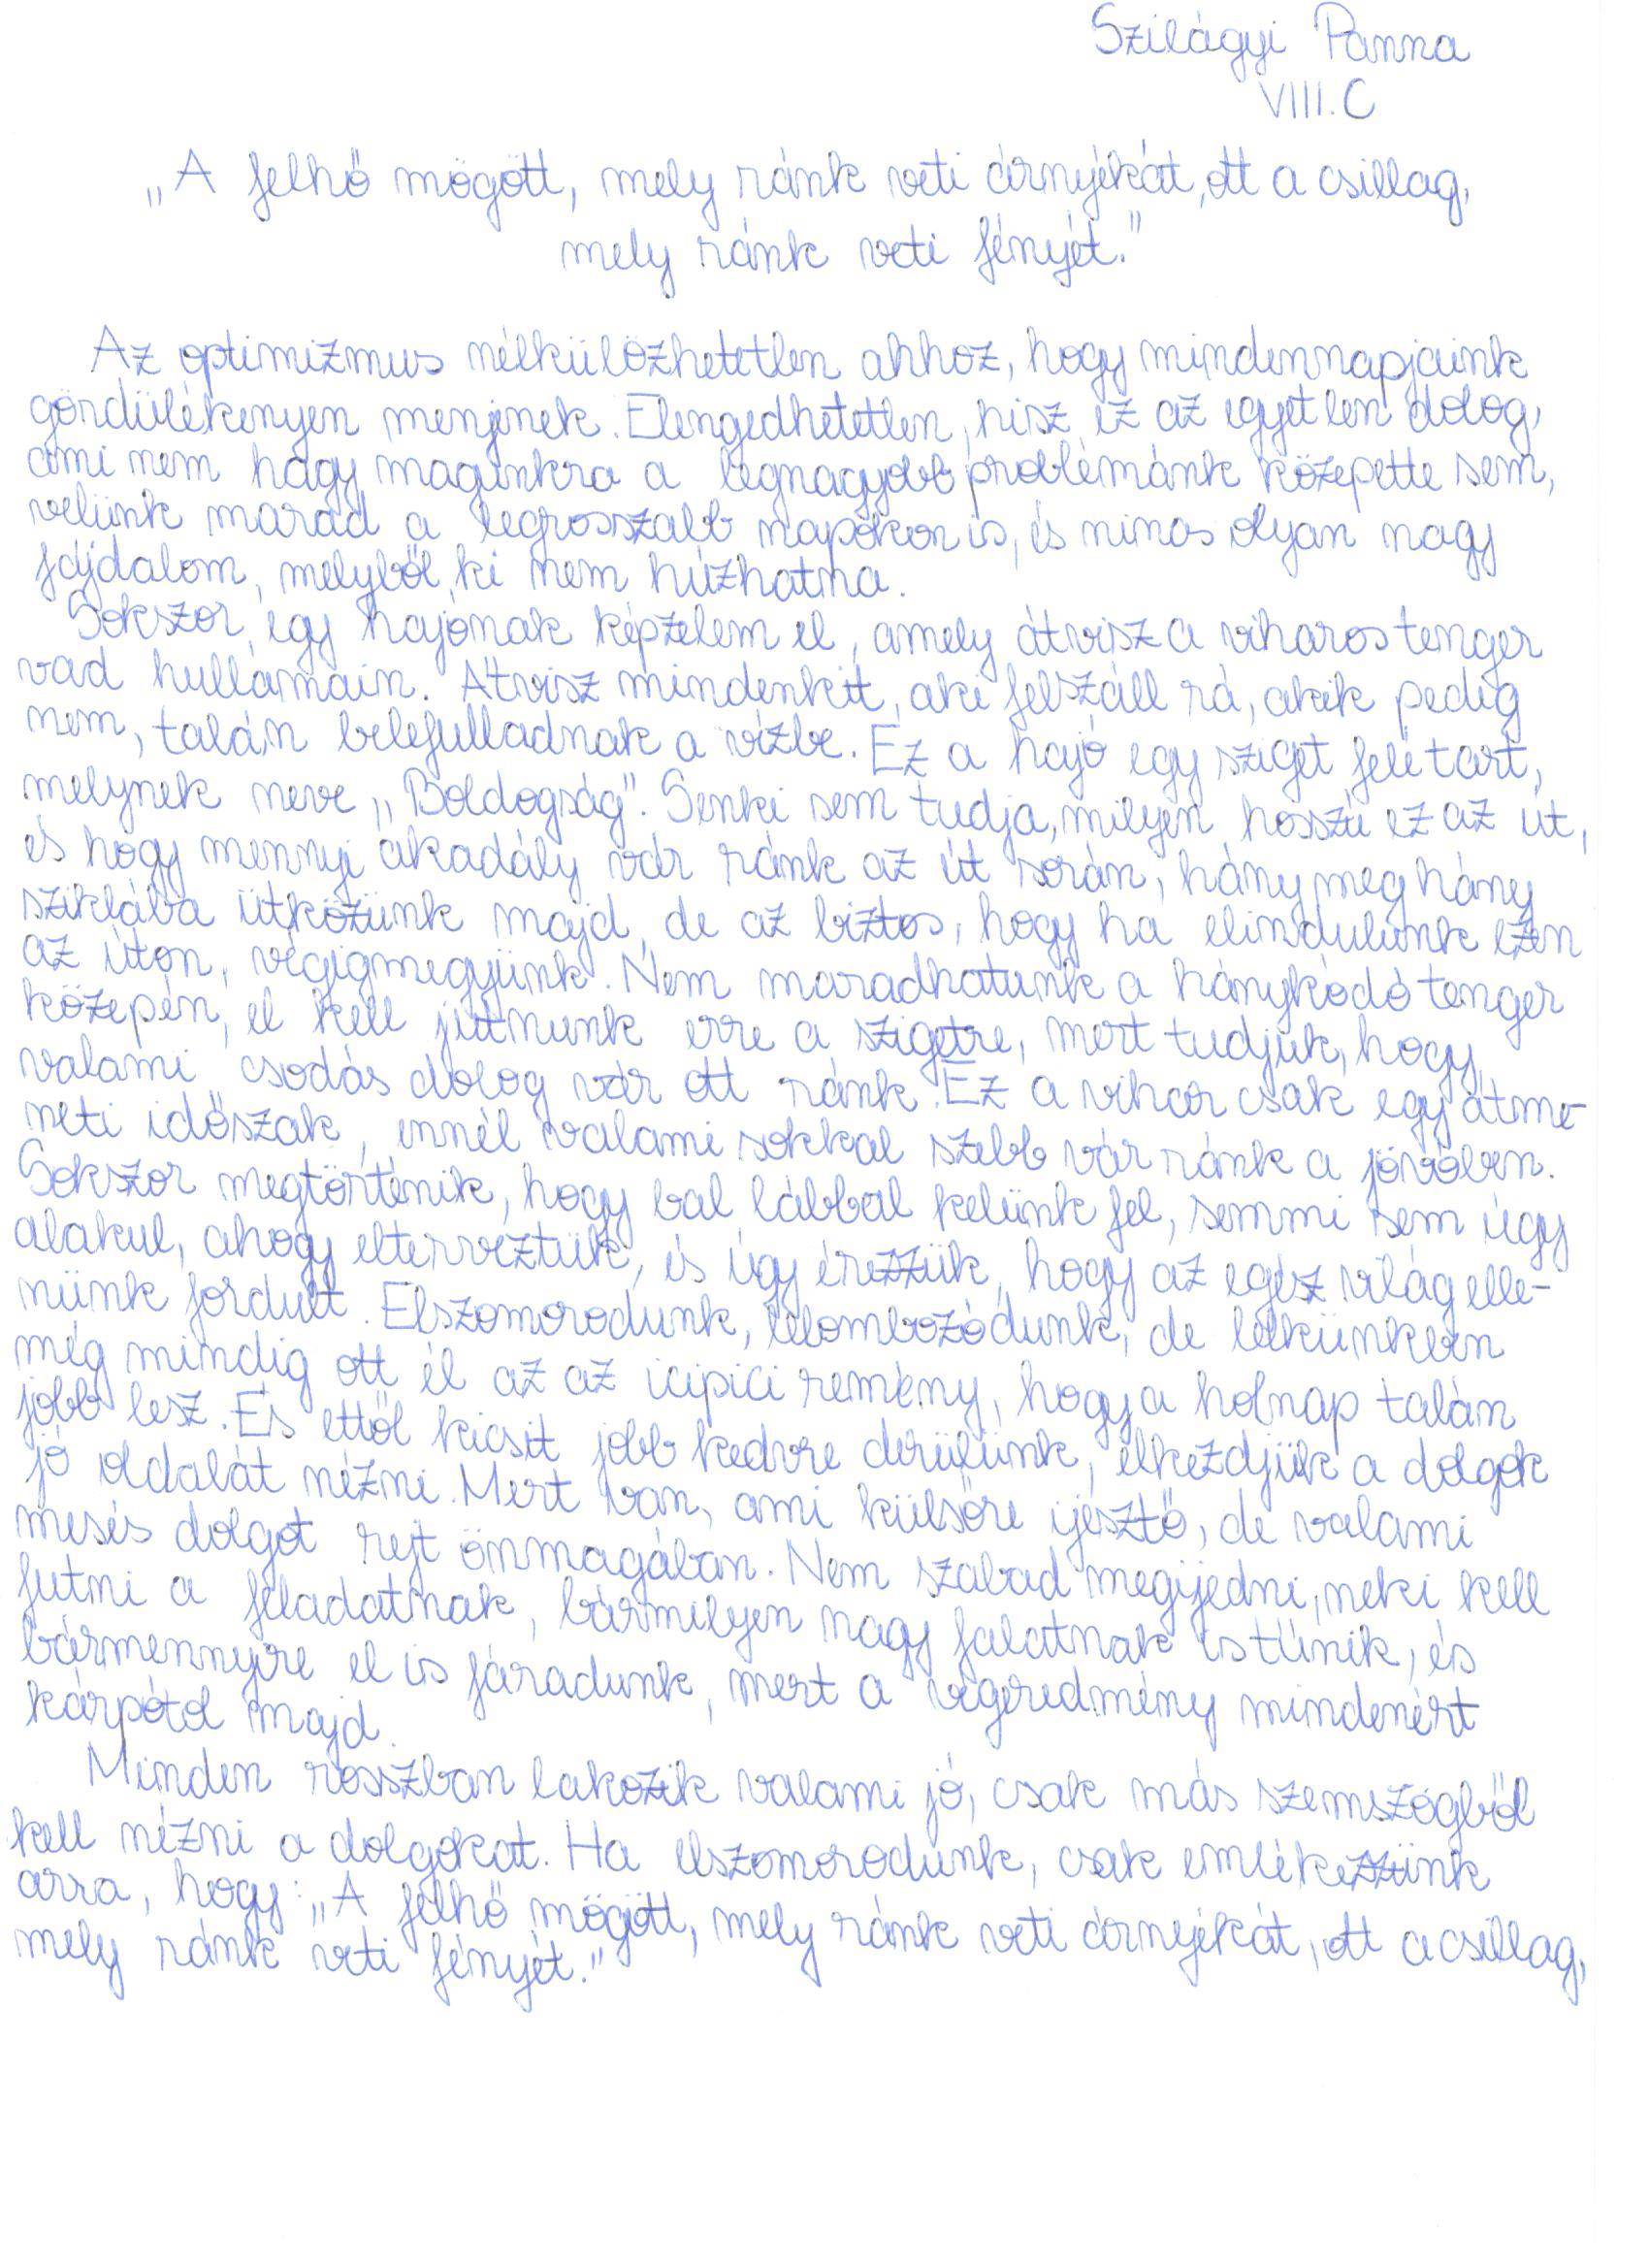 Szilágyi Panna
VIII.C
„A felhő mögött, mely ránk veti árnyékát, ott a csillag,
mely ránk veti fényét."
Az optimizmus nélkülözhetetlen ahhoz, hogy mindennapjaink
gördülékenyen menjenek. Elengedhetetlen, hisz ez az egyetlen dolog,
ami nem hagy magunkra a legnagyobb problémánk közepette sem,
velünk marad a legrosszabb napokon is, és nincs olyan nagy
fájdalom, melyből ki nem húzhatna.
Sokszor egy hajónak képzelem el, amely átvisz a viharos tenger
vad hullámain. Átvisz mindenkit, aki felszáll rá, akik pedig
nem, talán belefulladnak a vízbe. Ez a hajó egy sziget felé tart,
melynek neve „Boldogság". Senki sem tudja, milyen hosszú ez az út,
és hogy mennyi akadály vár ránk az út során, hány meg hány
sziklába ütközünk majd, de az biztos, hogy ha elindulunk ezen
az úton, végigmegyünk. Nem maradhatunk a hánykódó tenger
közepén, el kell jutnunk erre a szigetre, mert tudjuk, hogy
valami csodás dolog vár ott ránk. Ez a vihar csak egy átme-
neti időszak, ennél valami sokkal szebb vár ránk a jövőben.
Sokszor megtörténik, hogy bal lábbal kelünk fel, semmi sem úgy
alakul, ahogy elterveztük, és úgy érezzük, hogy az egész világ elle-
nünk fordult. Elszomorodunk, lelombozódunk, de lelkünkben
még mindig ott él az az icipici remény, hogy a holnap talán
jobb lesz. És ettől kicsit jobb kedvre derülünk, elkezdjük a dolgok
jó oldalát nézni. Mert van, ami külsőre ijesztő, de valami
mesés dolgot rejt önmagában. Nem szabad megijedni, neki kell
futni a feladatnak, bármilyen nagy falatnak is tűnik, és
bármennyire el is fáradunk, mert a végeredmény mindenért
kárpótol majd.
Minden rosszban lakozik valami jó, csak más szemszögből
kell nézni a dolgokat. Ha elszomorodunk, csak emlékezzünk
arra, hogy: „A felhő mögött, mely ránk veti árnyékát, ott a csillag,
mely ránk veti fényét."